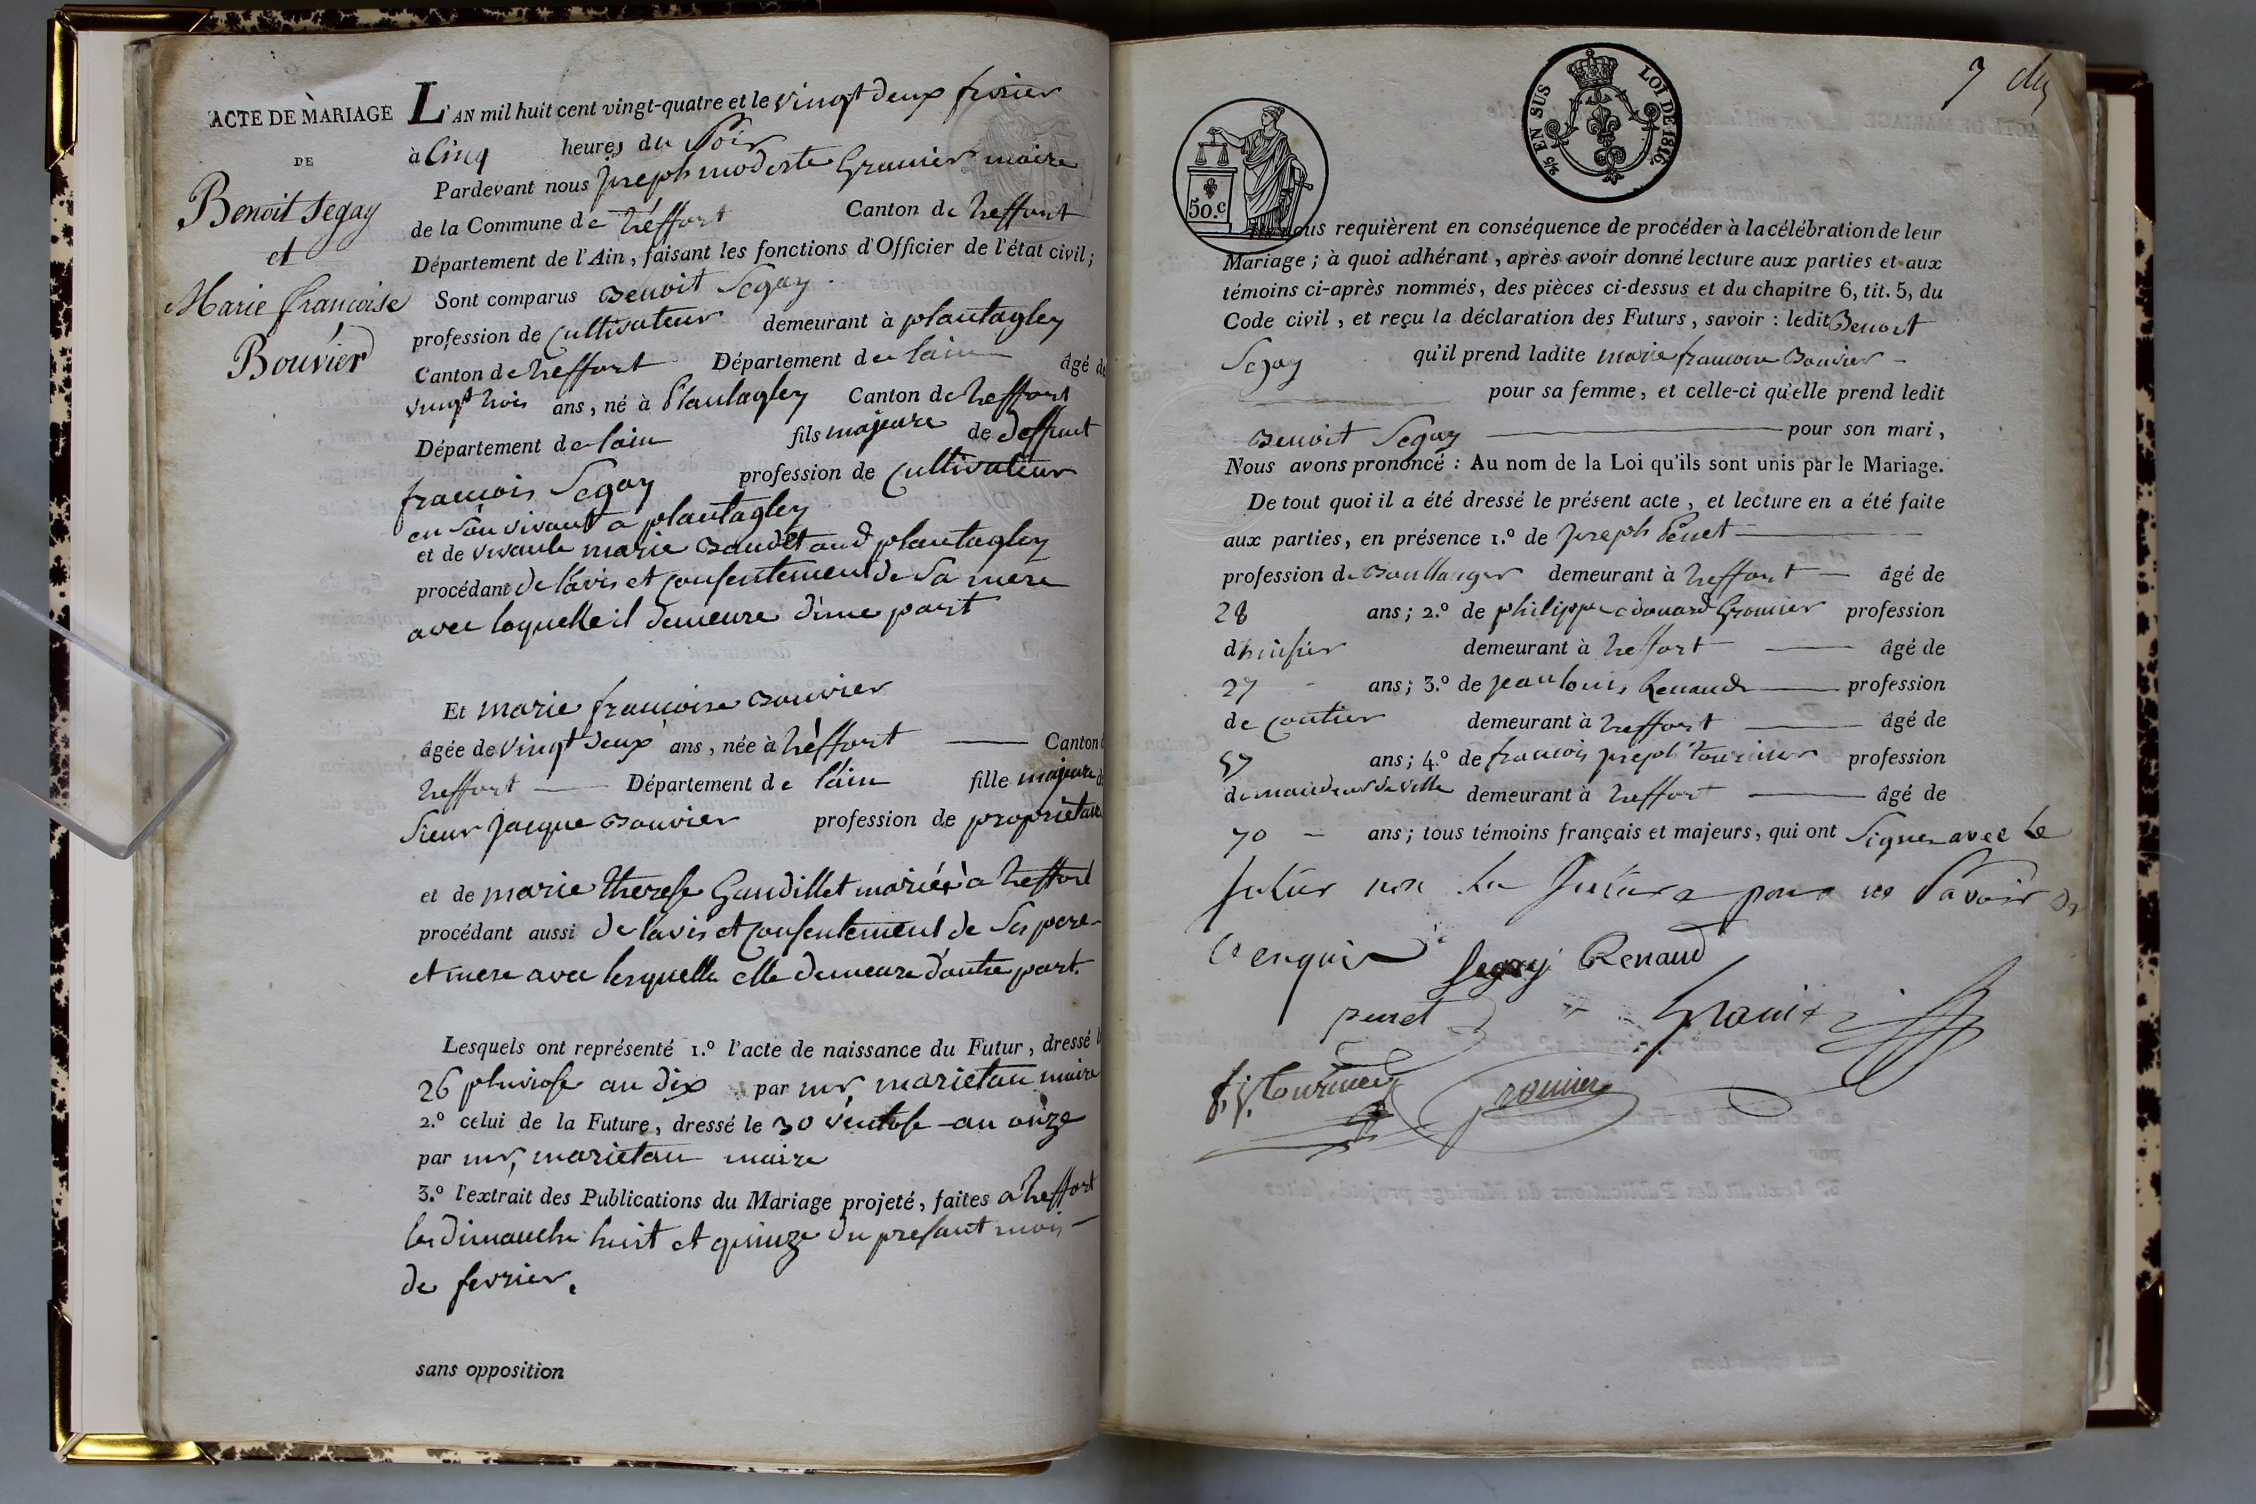 ACTE DE MARIAGE
DE
Benoit Segay
et
Marie francoise
Bouvier
L'AN mil huit cent vingt-quatre et le vingt deux fevrier
à Cinq heures du Soir
Pardevant nous joseph modeste Granier maire
de la Commune de tréffort Canton de treffort
Département de l'Ain, faisant les fonctions d'Officier de l'état civil;
Sont comparus Benoit Segay
profession de Cultivateur demeurant à plantagley
Canton de treffort Département de lain âgé de
vingt trois ans, né à Plantagley Canton de treffort
Département de lain fils majeure de deffunt
francois Segay profession de Cultivateur
en Son vivant a plantagley
et de vivante marie plantagley
procédant de lavis et Consentement de Sa mere
avec laquelle il demeure d'une part
Et marie francoise Bouvier
âgée de vingt deux ans, née à tréffort Canton
treffort Département de láin fille majeure
Sieur jacque Bouvier profession de propriétaire
et de marie therese Gaudillet mariés a treffort
procédant aussi de lavis et Consentement de Ses pere
et mere avec lesquelle elle demeure dautre part.
Lesquels ont représenté 1.º l'acte de naissance du Futur, dressé
26 pluviose an dix par mr, marietan maire
2.º celui de la Future, dressé le 30 ventose an onze
par mr, marietan maire
3.º l'extrait des Publications du Mariage projeté, faites a treffort
les dimanche huit et quinze du presant mois
de fevrier.
sans opposition
7
50.c
EN SUS
LOI DE 1816.
nous requièrent en conséquence de procéder à la célébration de leur
Mariage; à quoi adhérant, après avoir donné lecture aux parties et aux
témoins ci-après nommés, des pièces ci-dessus et du chapitre 6, tit. 5, du
Code civil, et reçu la déclaration des Futurs, savoir: ledit Benoit
Segay qu'il prend ladite marie francoise Bouvier
pour sa femme, et celle-ci qu'elle prend ledit
Benoit Segay pour son mari,
Nous avons prononcé: Au nom de la Loi qu'ils sont unis par le Mariage.
De tout quoi il a été dressé le présent acte, et lecture en a été faite
aux parties, en présence 1.º de joseph Penet
profession de Boullanger demeurant à treffort âgé de
28 ans; 2.º de philippe edouard Granier profession
dhuissier demeurant à treffort âgé de
27 ans; 3.º de jean louis Renaud profession
de demeurant à treffort âgé de
57 ans; 4.º de francois joseph Tournier profession
de ville demeurant à treffort âgé de
70 ans; tous témoins français et majeurs, qui ont Signer avec le
futur non la future pour ne Savoir de
ce enquis
Segay Renaud
penet
Granier
f. j. Tournier
Granier